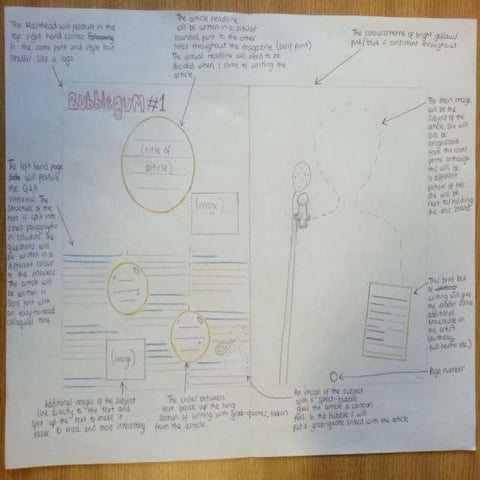 The Masthead will feature in the
top right hand corner.
in the same font and style but
smaller like a logo.
The article heading
will be written in a similar
rounded font to the other
titles throughout the magazine (serif font)
The actual headline will need to be
decided when I come to writing the
article.
The colourscheme of bright yellow/
pink/blue is consistent throughout
BubblegUM #1
(title of
article)
(image)
(image)
The main image
will be the
subject of the
article, she will
also be
recognisable
from the cover
photo although
this will be
a different
picture of her.
She will be
next to/holding
the mic stand
The left hand page
will feature
the Q&A
interview. The
structure of the
text is split into
small paragraphs
in columns. The
questions will
be written in a
different colour
to the answers
The article will
be written in
serif font with
an easy-to-read
colloquial tone.
This brief box
of
writing will give
the reader some
additional
knowledge on
the artist
(birthday,
full name etc.)
Page number
Additional images of the subject
link directly to the text and
split up the text to make it
easier to read and more interesting
The circles between
text break up the long
section of writing with grab-quotes, taken
from the article.
An image of the subject
with a speech-bubble
gives the article a cartoon
feel. In the bubble I will
put a grab-quote linked with the article